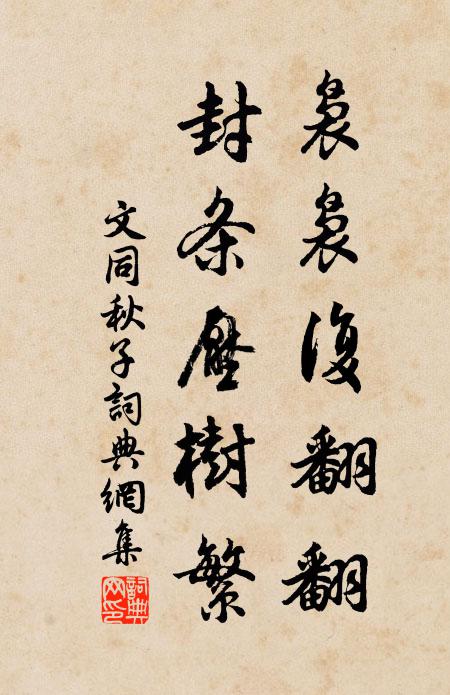 裊裊復翻翻
封条壓樹繁
文同秋子詞典網集
詞典
网印